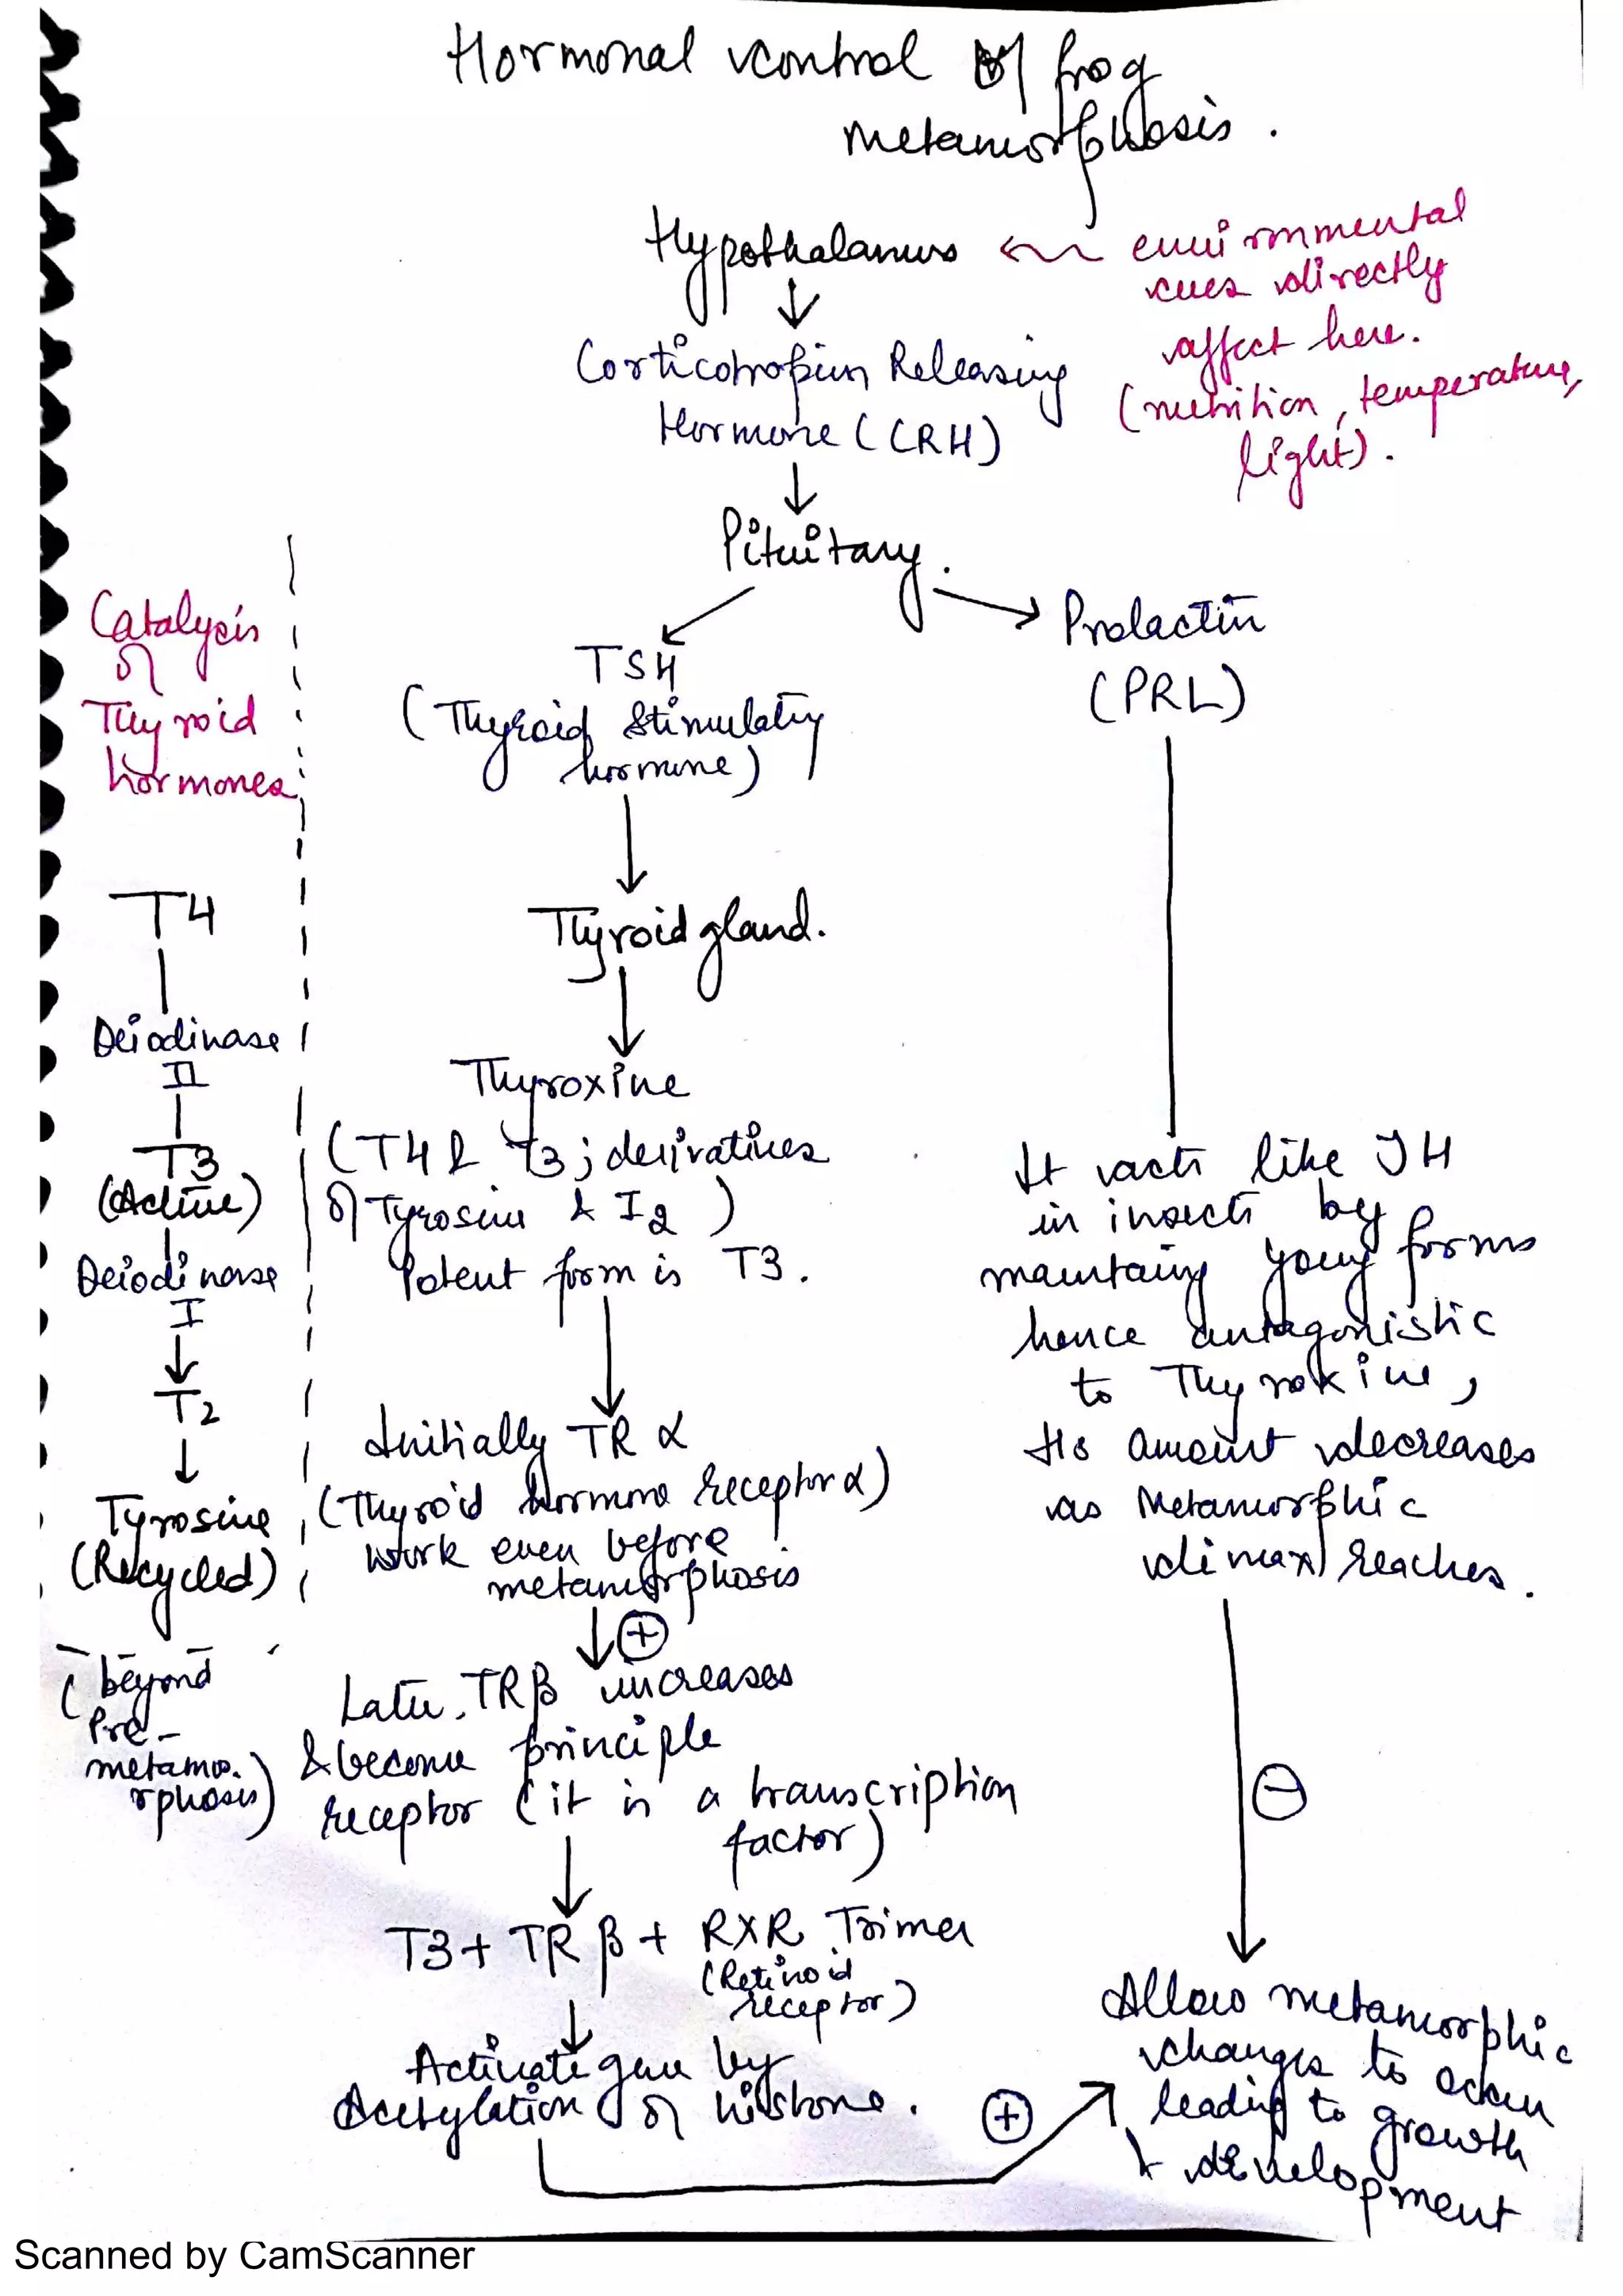 Hormonal control of frog
metamorphosis.
Hypothalamus
environmental
cues directly
affect here.
(nutrition, temperature,
light).
Corticotropin Releasing
Hormone (CRH)
Pituitary.
TSH
(Thyroid Stimulating
hormone)
Prolactin
(PRL)
Catalysis
of
Thyroid
hormones
T4
Deiodinase
II
T3
(Active)
Deiodinase
I
T2
Tyrosine
(Recycled)
(beyond
Pre-
metamo.
rphosis)
Thyroid gland.
Thyroxine
(T4 & T3; derivatives
of Tyrosine & I2)
Potent form is T3.
Initially TR α
(Thyroid hormone receptor α)
work even before
metamorphosis
+
Later, TRβ increases
& become principle
receptor (it is a transcription
factor)
T3 + TR β + RXR Trimer
(Retinoid
receptor)
Activate gene by
Acetylation of histone.
+
It acts like JH
in insects by
maintaing young forms
hence antagonistic
to Thyroxine,
Its amount decreases
as Metamorphic
climax reaches.
−
Allow metamorphic
changes to occur
leading to growth
& development
Scanned by CamScanner